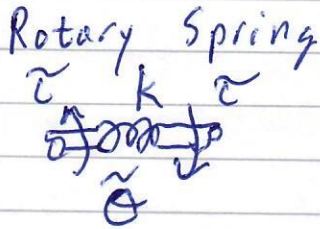 Rotary Spring
τ̃ k τ̃
θ̃